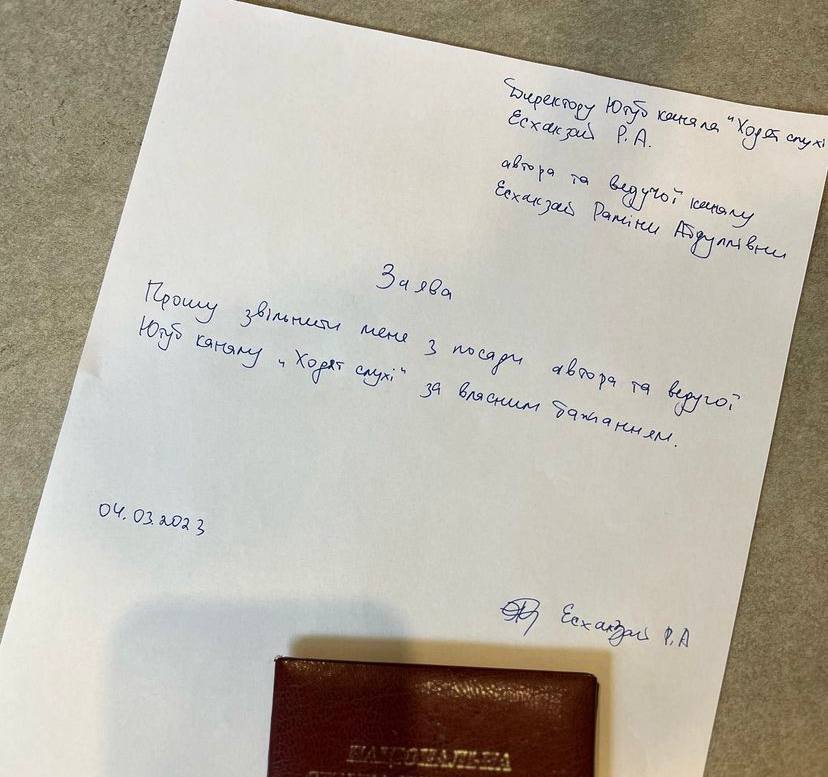 Директору Ютуб канала "Ходят слухі
Есханзай Р.А.
автора та ведучої каналу
Есханзай Раміни Абдуллівни
Заява
Прошу звільнити мене з посади автора та ведучої
Ютуб каналу "Ходят слухі" за власним бажанням.
04.03.2023
Есханзай Р.А
НАЦІОНАЛЬНА